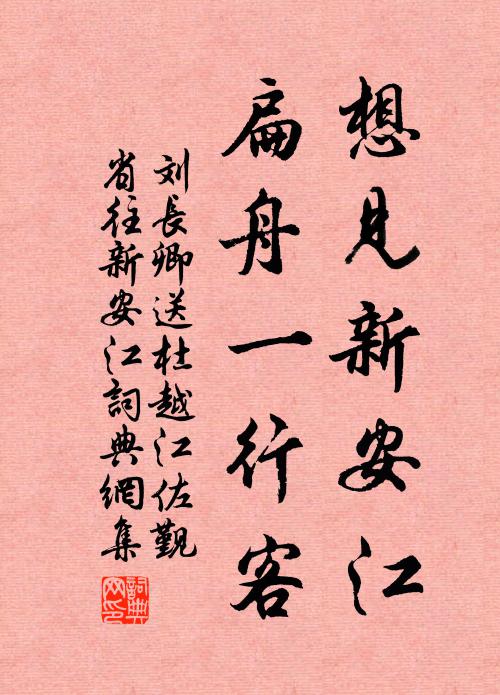 想見新安江
扁舟一行客
刘長卿送杜越江佐觐
省往新安江詞典網集
詞典
网印